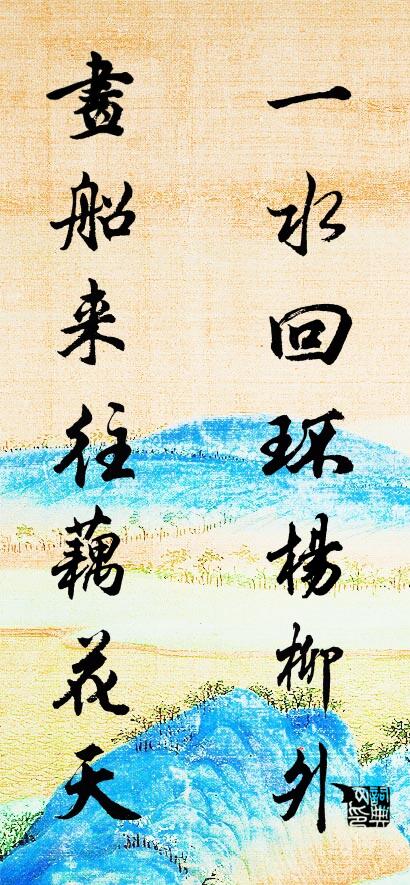 一水回环楊柳外
畫船来往藕花天